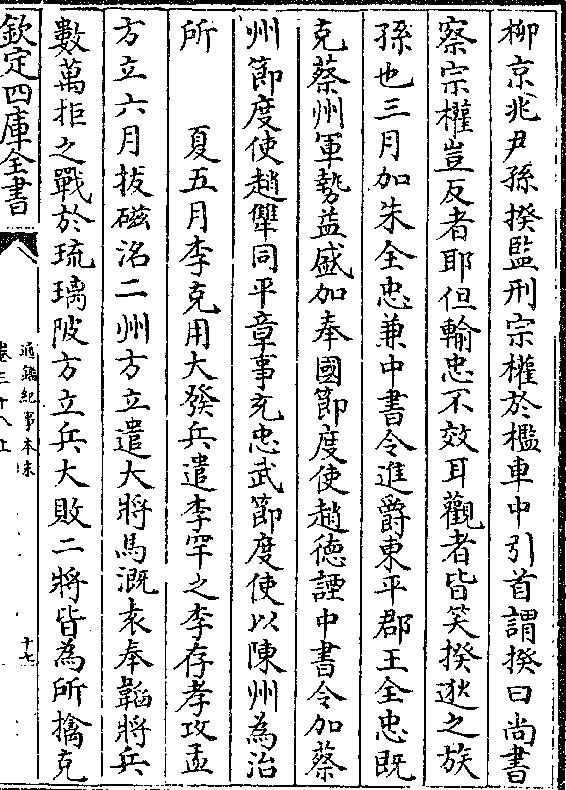 柳京兆尹孫揆監刑宗權於檻車中引首謂揆曰尚書
察宗權豈反者耶但輸忠不效耳觀者皆笑揆逖之族
孫也三月加朱全忠兼中書令進爵東平郡王全忠既
克蔡州軍勢益盛加奉國節度使趙徳諲中書令加蔡
州節度使趙犨同平章事充忠武節度使以陳州為治
所　夏五月李克用大發兵遣李罕之李存孝攻孟
方立六月拔磁洺二州方立遣大將馬溉袁奉韜將兵
數萬拒之戰於琉璃陂方立兵大敗二將皆為所擒克
欽定四庫全書
通鑑紀事本末
卷三十八上
十七